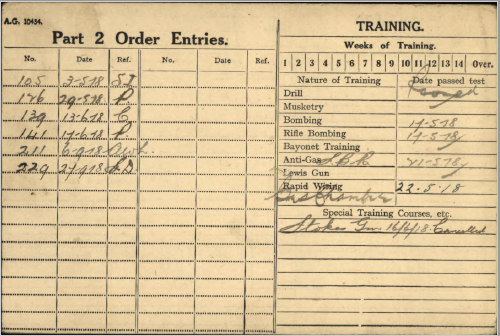 A.G. 10454.
Part 2 Order Entries.
No. Date Ref. No. Date Ref.
105 3-5-18 SI
146 29-5-18 P.
139 13-6-18 C
141 17-6-18 P
211 6-9-18
229 27-9-18
TRAINING.
Weeks of Training.
1 2 3 4 5 6 7 8 9 10 11 12 13 14 Over.
Nature of Training Date passed test
Drill
Musketry
Bombing 17-5-18
Rifle Bombing 17-5-18
Bayonet Training
Anti-Gas S.B.R. 21-5-18
Lewis Gun
Rapid Wiring 22.5.18
Gas Chamber
Special Training Courses, etc.
Stokes Gun 16/4/18. Cancelled